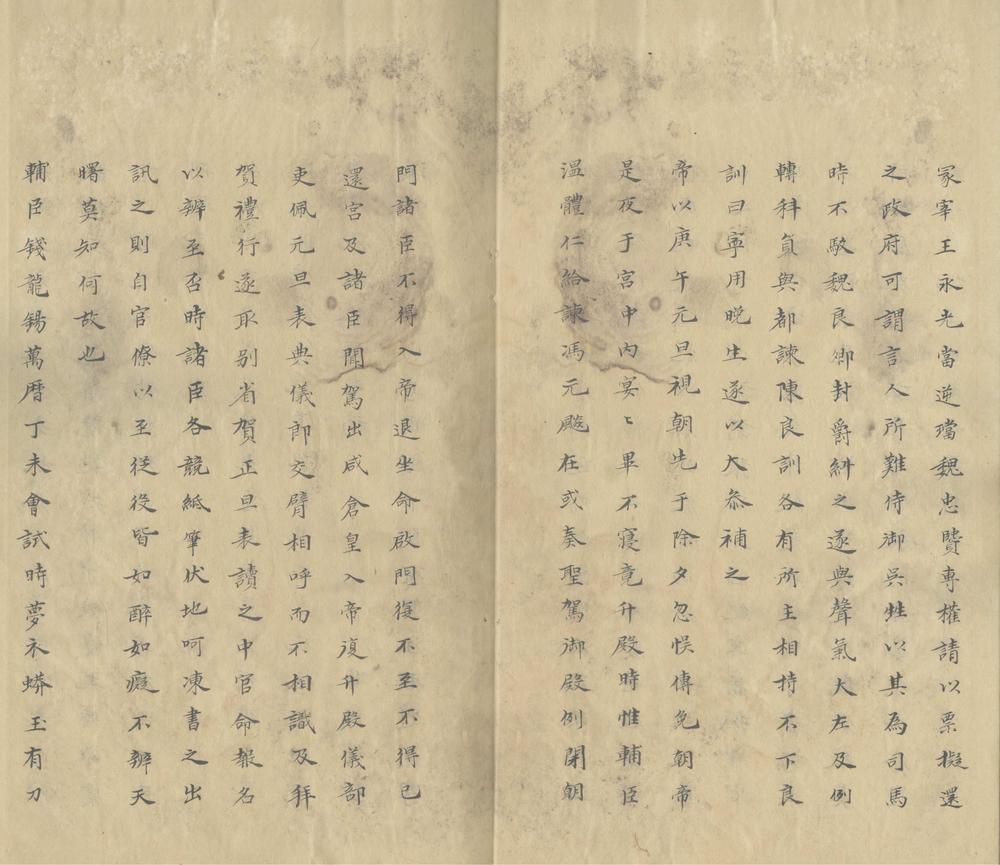 冢宰王永光當逆璫魏忠賢專權請以票擬還
之政府可謂言人所難侍御吳甡以其為司馬
時不駁魏良卿封爵糾之遂與聲氣大左及例
轉科員與都諫陳良訓各有所主相持不下良
訓曰寧用晚生遂以大叅補之
帝以庚午元旦視朝先于除夕忽悮傳免朝帝
是夜于宮中內宴〻畢不寢竟升殿時惟輔臣
溫體仁給諫馮元飈在或奏聖駕御殿例閉朝
門諸臣不得入帝退坐命啟門復不至不得已
還宮及諸臣聞駕出咸倉皇入帝復升殿儀部
吏佩元旦表典儀郎交臂相呼而不相識及拜
賀禮行遂取别省賀正旦表讀之中官命報名
以辨至否時諸臣各競紙筆伏地呵凍書之出
訊之則自官僚以至從役皆如醉如癡不辨天
曙莫知何故也
輔臣錢龍錫萬曆丁未會試時夢衣蟒玉有刀